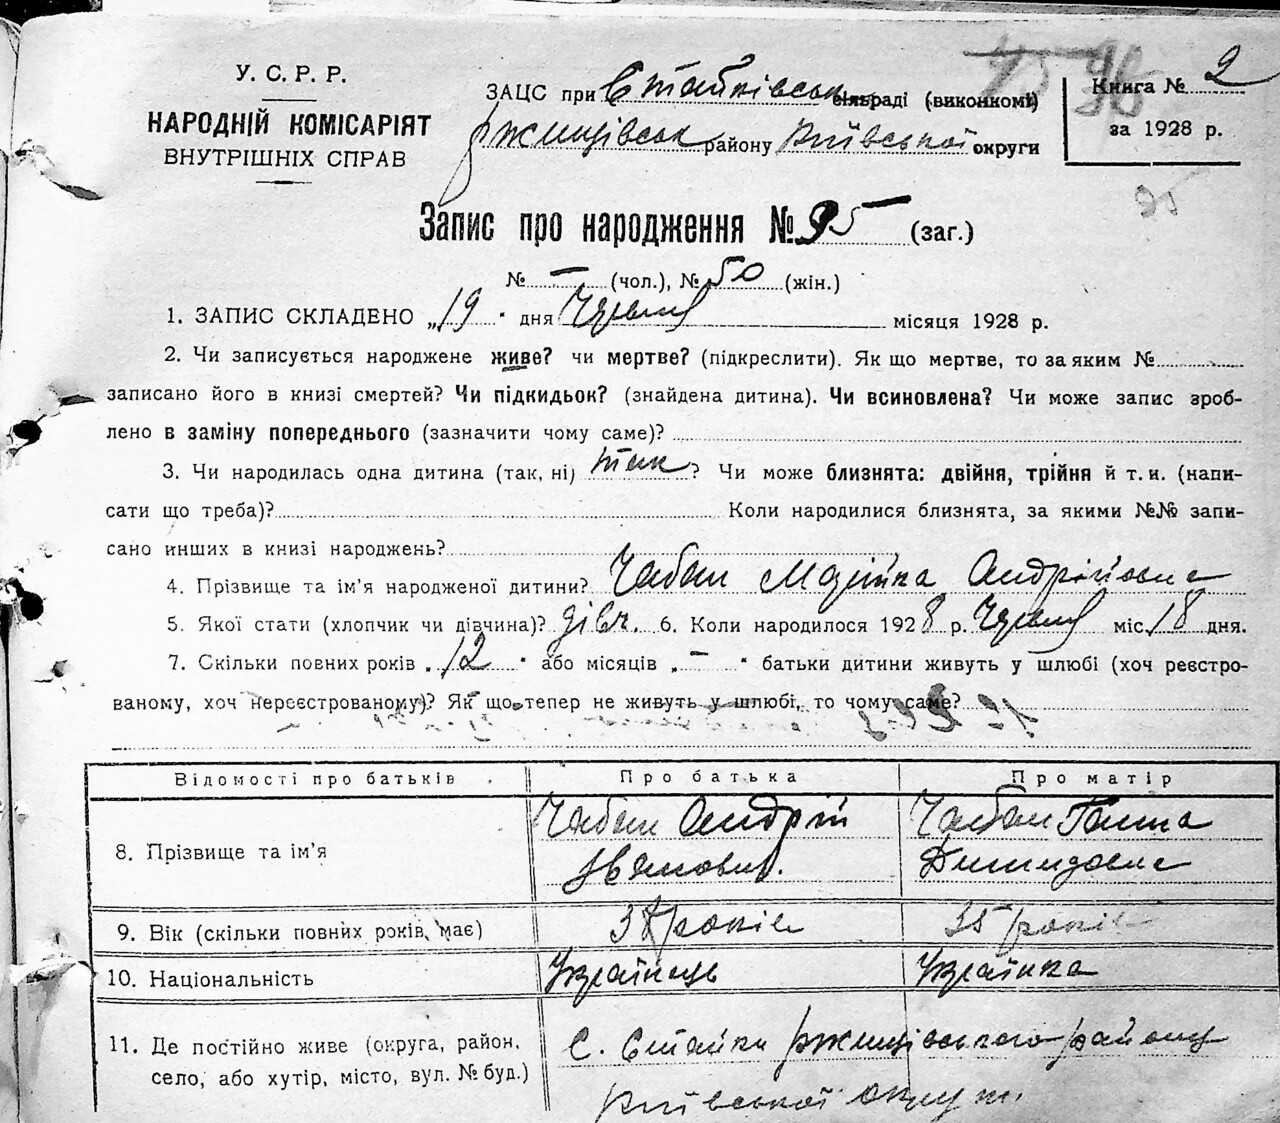 У. С. Р. Р.
НАРОДНІЙ КОМІСАРІЯТ
ВНУТРІШНІХ СПРАВ
ЗАЦС при Стайківськ сільраді (виконкомі)
Ржищівськ району Київської округи
Книга № 2
за 1928 р.
95
Запис про народження № 95 (заг.)
№ — (чол.), № 50 (жін.)
1. ЗАПИС СКЛАДЕНО „19" дня Червня місяця 1928 р.
2. Чи записується народжене живе? чи мертве? (підкреслити). Як що мертве, то за яким №
записано його в книзі смертей? Чи підкидьок? (знайдена дитина). Чи всиновлена? Чи може запис зроб-
лено в заміну попереднього (зазначити чому саме)?
3. Чи народилась одна дитина (так, ні) так? Чи може близнята: двійня, трійня й т. и. (напи-
сати що треба)? Коли народилися близнята, за якими №№ запи-
сано инших в книзі народжень?
4. Прізвище та ім'я народженої дитини? Чабан Марійка Андрійовна
5. Якої стати (хлопчик чи дівчина)? дівч. 6. Коли народилося 1928 р. Червня міс. 18 дня.
7. Скільки повних років „12" або місяців „—" батьки дитини живуть у шлюбі (хоч реєстро-
ваному, хоч нереєстрованому)? Як що тепер не живуть у шлюбі, то чому саме?
Відомості про батьків Про батька Про матір
8. Прізвище та ім'я Чабан Андрій Чабан Ганна
Іванович. Демидовна
9. Вік (скільки повних років має) 38 років 35 років
10. Національність Українець Українка
11. Де постійно живе (округа, район, С. Стайки Ржищівського району
село, або хутір, місто, вул. № буд.) Київської округи.